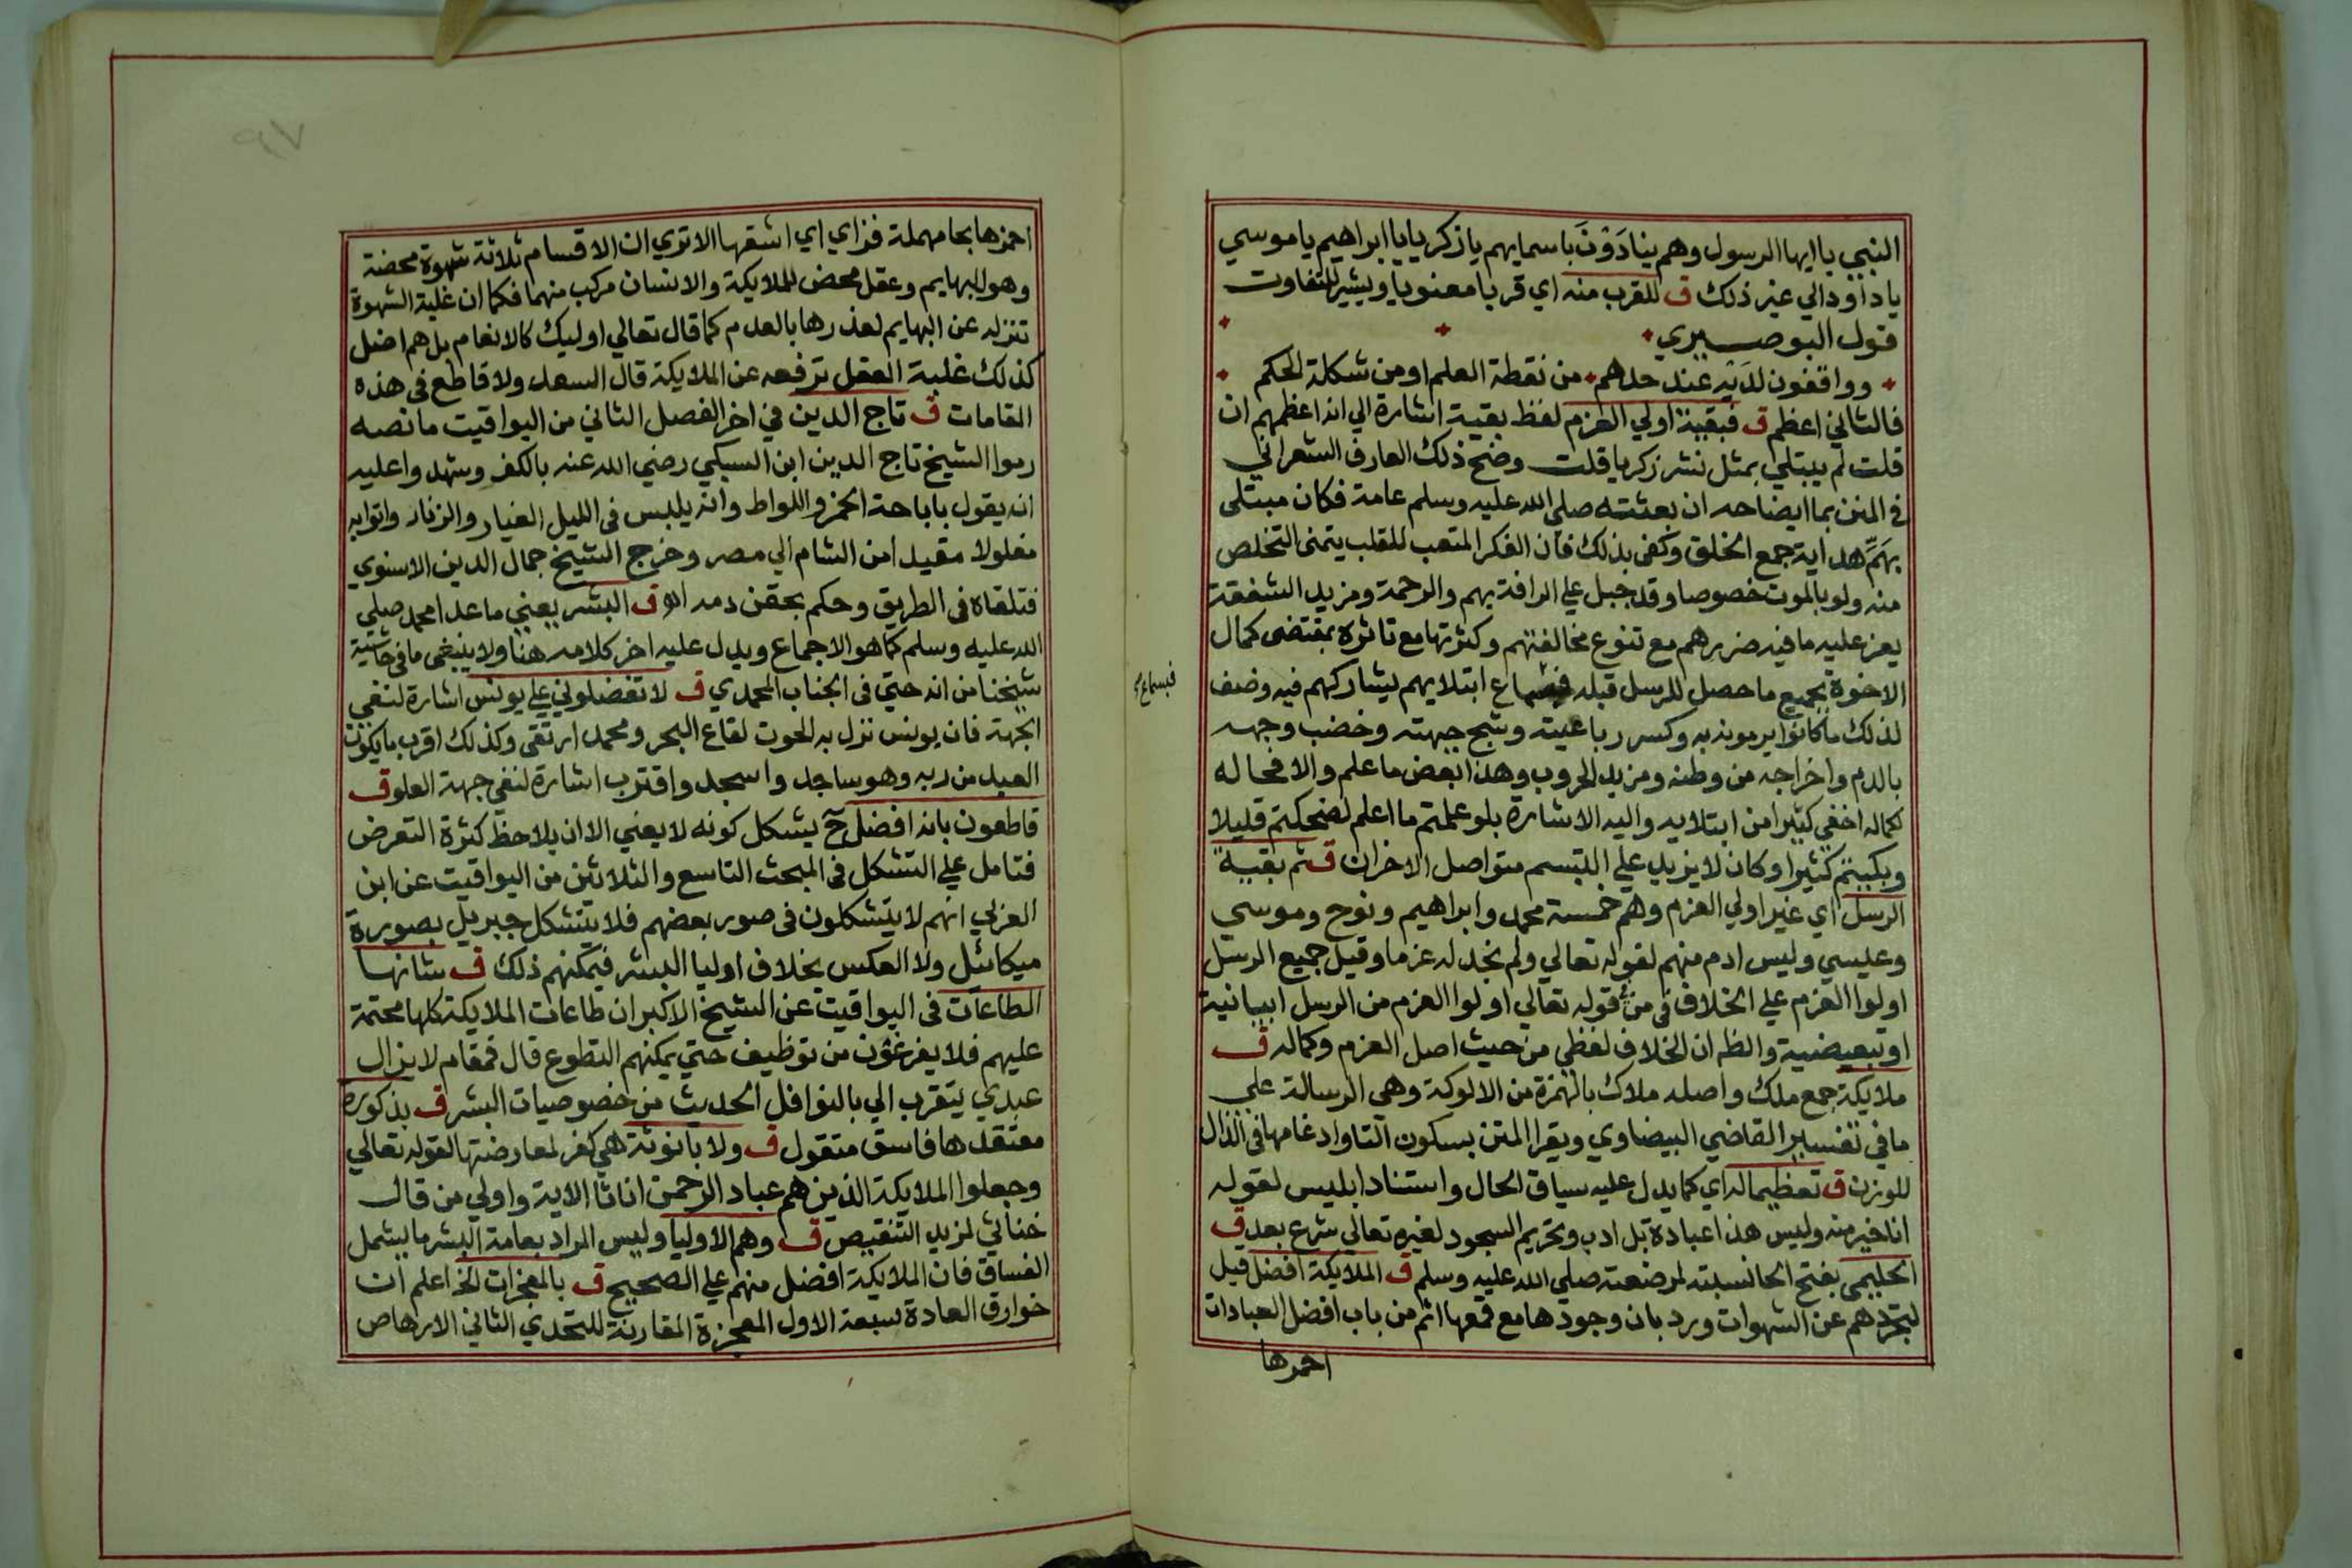 النبي يا ايها الرسول وهم ينادَوْنَ باسمايهم يا زكريا يا ابراهيم يا موسي
يا داوود الي غير ذلك ق للقرب منه اي قربا معنويا ويشير للتفاوت
قول البوصيري
وواقفون لدَيْه عند حدهم من نقطة العلم او من شكلة الحكم
فالتالي اعظم ق فبقية اولي العزم لفظ بقية اشارة الي انه اعظمهم ان
قلت لم يبتلي بمثل نشر زكريا قلت وضح ذلك العارف الشعراني
في المنن بما ايضاحه ان بعثته صلي الله عليه وسلم عامة فكان مبتلي
بهَمِّ هداية جمع الخلق وكفي بذلك فان الفكر المتعب للقلب يتمني التخلص
منه ولو بالموت خصوصا وقد جبل علي الرافة بهم والرحمة ومزيد الشفقة
يعز عليه ما فيه ضررهم مع تنوع مخالفتهم وكثرتها مع تاثره بمقتضي كمال
الاخوة بجميع ما حصل للرسل قبله ابتلايهم يشاركهم فيه وضف
فبسماع
لذلك ما كانوا يرمونه به وكسر رباعيته وشج جبهته وخضب وجهه
بالدم واخراجه من وطنه ومزيد الحروب وهذا بعض ما علم والا فحاله
كماله اخفي كثيرا من ابتلايه واليه الاشارة بلو علمتم ما اعلم لضحكتم قليلا
وبكيتم كثيرا وكان لا يزيد علي التبسم متواصل الاحزان ق ثم بقية
الرسل اي غير اولي العزم وهم خمسة محمد وابراهيم ونوح وموسي
وعيسي وليس ادم منهم لقوله تعالي ولم نجد له عزما وقيل جميع الرسل
اولوا العزم علي الخلاف في من قوله تعالي اولوا العزم من الرسل ابيانية
او تبعيضية والظ ان الخلاف لفظي من حيث اصل العزم وكماله ق
ملايكة جمع ملك واصله ملاك بالهمزة من الالوكة وهي الرسالة علي
ما في تفسير القاضي البيضاوي ويقرا المتن بسكون التا وادغامها في الذال
للوزن ق تعظيما له اي كما يدل عليه سياق الحال واستناد ابليس لقوله
انا خير منه وليس هذا عبادة بل ادب وتحريم السجود لغيره تعالي شرع بعد ق
الحليمي بفتح الحا نسبته لمرضعته صلي الله عليه وسلم ق الملايكة افضل قيل
لتجردهم عن الشهوات ورد بان وجودها مع قمعها اتم من باب افضل العبادات
احمزها
احمزها بحا مهملة فزاي اي اشقها الا تري ان الاقسام ثلاثة شهوة محضة
وهو للبهايم وعقل محض للملايكة والانسان مركب منهما فكما ان غلبة الشهوة
تنزله عن البهايم لعذرها بالعدم كما قال تعالي اوليك كالانعام بل هم اضل
كذلك غلبة العقل ترفعه عن الملايكة قال السعد ولا قاطع في هذه
المقامات ق تاج الدين في اخر الفصل الثاني من اليواقيت ما نصه
رموا الشيخ تاج الدين ابن السبكي رضي الله عنه بالكفر وشهدوا عليه
انه يقول باباحة الخمر واللواط وانه يلبس في الليل الغيار والزنار واتوا به
مغلولا مقيدا من الشام الي مصر وخرج الشيخ جمال الدين الاسنوي
فتلقاه في الطريق وحكم بحقن دمه اﻫ ق البشر يعني ما عدا محمد صلي
الله عليه وسلم كما هو الاجماع ويدل عليه اخر كلامه هنا ولا ينبغي ما في حاشية
شيخنا من انه حتي في الجناب المحمدي ق لا تفضلوني علي يونس اشارة لنفي
الجهة فان يونس نزل به الحوت لقاع البحر ومحمد ارتقي وكذلك اقرب ما يكون
العبد من ربه وهو ساجد واسجد واقترب اشارة لنفي جهة العلو ق
قاطعون بانه افضل ح يشكل كونه لا يعني الا ان يلاحظ كثرة التعرض
فتامل علي التشكل في المبحث التاسع والثلاثين من اليواقيت عن ابن
العربي انهم لا يتشكلون في صور بعضهم فلا يتشكل جبريل بصورة
ميكائيل ولا العكس بخلاف اوليا البشر فيمكنهم ذلك ق شانها
الطاعات في اليواقيت عن الشيخ الاكبر ان طاعات الملايكة كلها محتمة
عليهم فلا يفرغون من توظيف حتي يمكنهم التطوع قال فمقام لا يزال
عبدي يتقرب الي بالنوافل الحديث من خصوصيات البشر ق بذكورة
معتقدها فاسق متقول ق ولا بانوثة هي كفر لمعارضتها لقوله تعالي
وجعلوا الملايكة الذين هم عباد الرحمن اناثا الاية واولي من قال
خناثي لمزيد التنقيص ق وهم الاوليا وليس المراد بعامة البشر ما يشمل
الفساق فان الملايكة افضل منهم علي الصحيح ق بالمعجزات الخ اعلم ان
خوارق العادة سبعة الاول المعجزة المقارنة للتحدي الثاني الارهاص